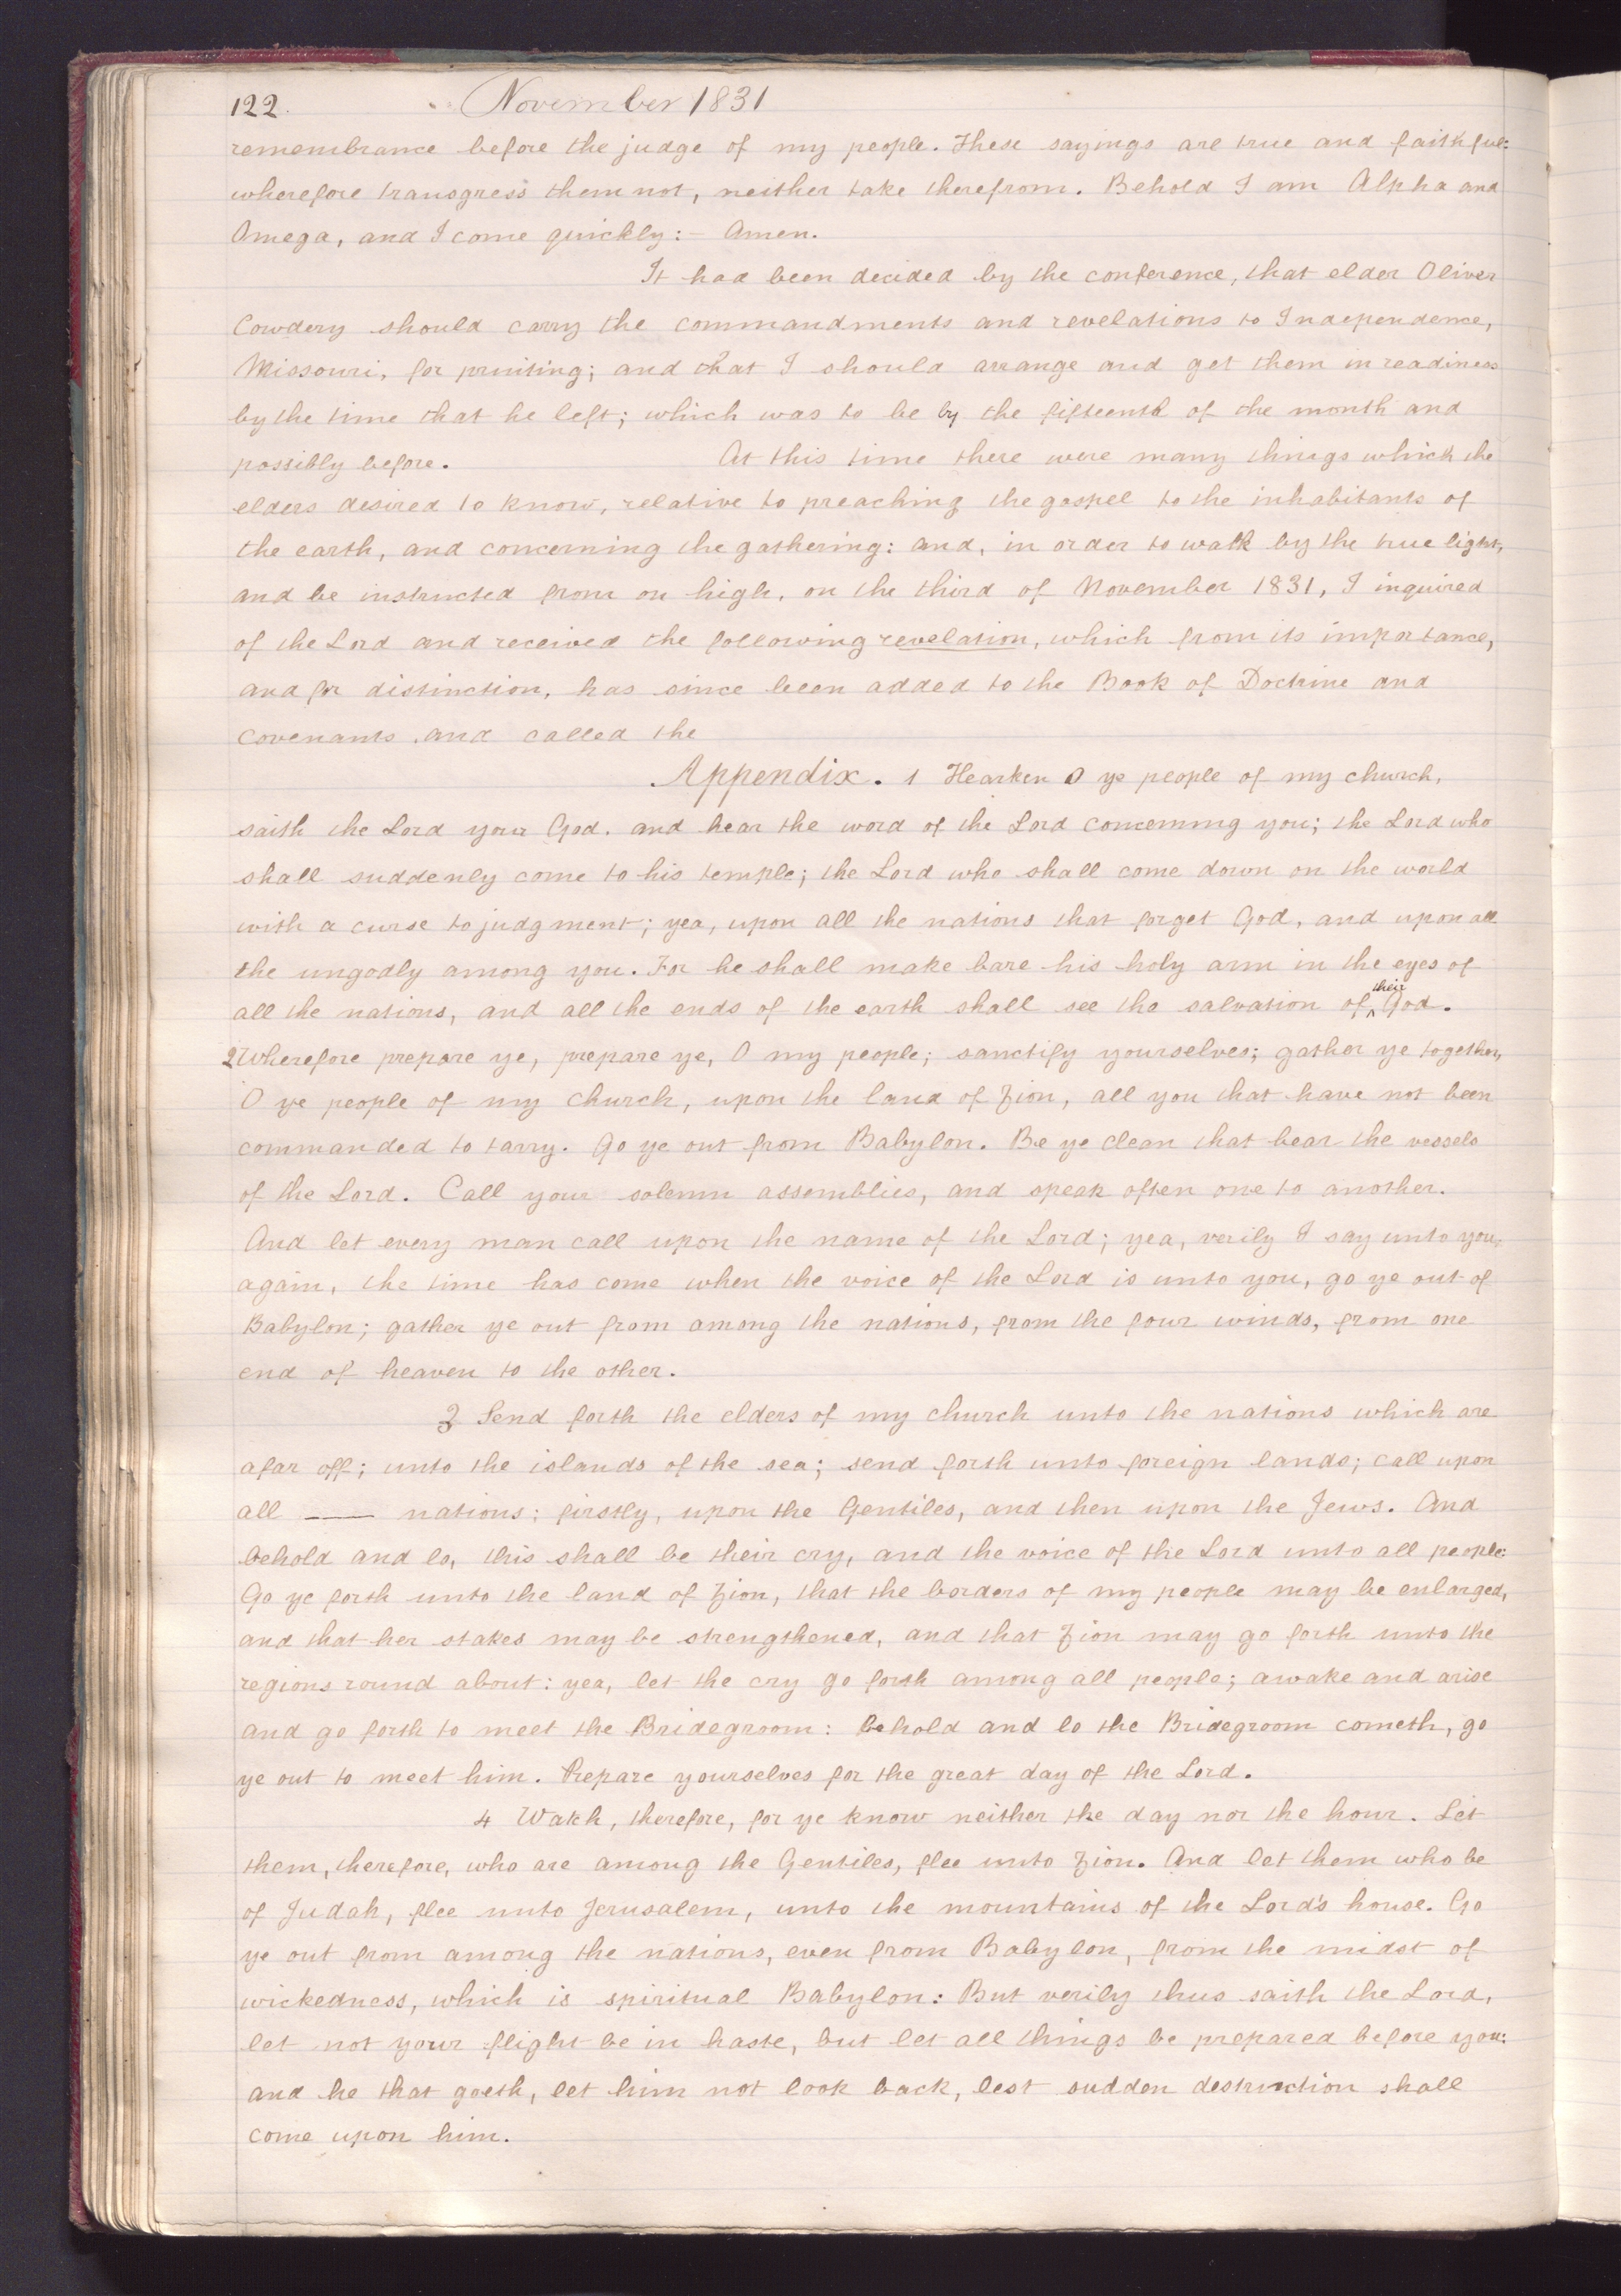 122. November 1831
remembrance before the judge of my people. These sayings are true and faithful:
wherefore transgress them not, neither take therefrom. Behold I am Alpha and
Omega, and I come quickly:– Amen.
It had been decided by the conference, that elder Oliver
Cowdery should carry the commandments and revelations to Independence,
Missouri, for printing; and that I should arrange and get them in readiness
by the time that he left; which was to be by the fifteenth of the month and
possibly before. At this time there were many things which the
elders desired to know, relative to preaching the gospel to the inhabitants of
the earth, and concerning the gathering: and, in order to walk by the true light,
and be instructed from on high, on the third of November 1831, I inquired
of the Lord and received the following revelation, which from its importance,
and for distinction, has since been added to the Book of Doctrine and
covenants, and called the
Appendix. 1 Hearken O ye people of my church,
saith the Lord your God. and hear the word of the Lord concerning you; the Lord who
shall suddenly come to his temple; the Lord who shall come down on the world
with a curse to judgment; yea, upon all the nations that forget God, and upon all
the ungodly among you. For he shall make bare his holy arm in the eyes of
all the nations, and all the ends of the earth shall see the salvation of ^their God.
2 Wherefore prepare ye, prepare ye, O my people; sanctify yourselves; gather ye together,
O ye people of my church, upon the land of Zion, all you that have not been
commanded to tarry. Go ye out from Babylon. Be ye clean that bear the vessels
of the Lord. Call your solemn assemblies, and speak often one to another.
And let every man call upon the name of the Lord; yea, verily I say unto you,
again, the time has come when the voice of the Lord is unto you, go ye out of
Babylon; gather ye out from among the nations, from the four winds, from one
end of heaven to the other.
3 Send forth the elders of my church unto the nations which are
afar off; unto the islands of the sea; send forth unto foreign lands; call upon
all —— nations; firstly, upon the Gentiles, and then upon the Jews. And
behold and lo, this shall be their cry, and the voice of the Lord unto all people:
Go ye forth unto the land of Zion, that the borders of my people may be enlarged,
and that her stakes may be strengthened, and that Zion may go forth unto the
regions round about: yea, let the cry go forth among all people; awake and arise
and go forth to meet the Bridegroom: behold and lo the Bridegroom cometh, go
ye out to meet him. Prepare yourselves for the great day of the Lord.
4 Watch, therefore, for ye know neither the day nor the hour. Let
them, therefore, who are among the Gentiles, flee unto Zion. And let them who be
of Judah, flee unto Jerusalem, unto the mountains of the Lord's house. Go
ye out from among the nations, even from Babylon, from the midst of
wickedness, which is spiritual Babylon: But verily thus saith the Lord,
let not your flight be in haste, but let all things be prepared before you:
and he that goeth, let him not look back, lest sudden destruction shall
come upon him.